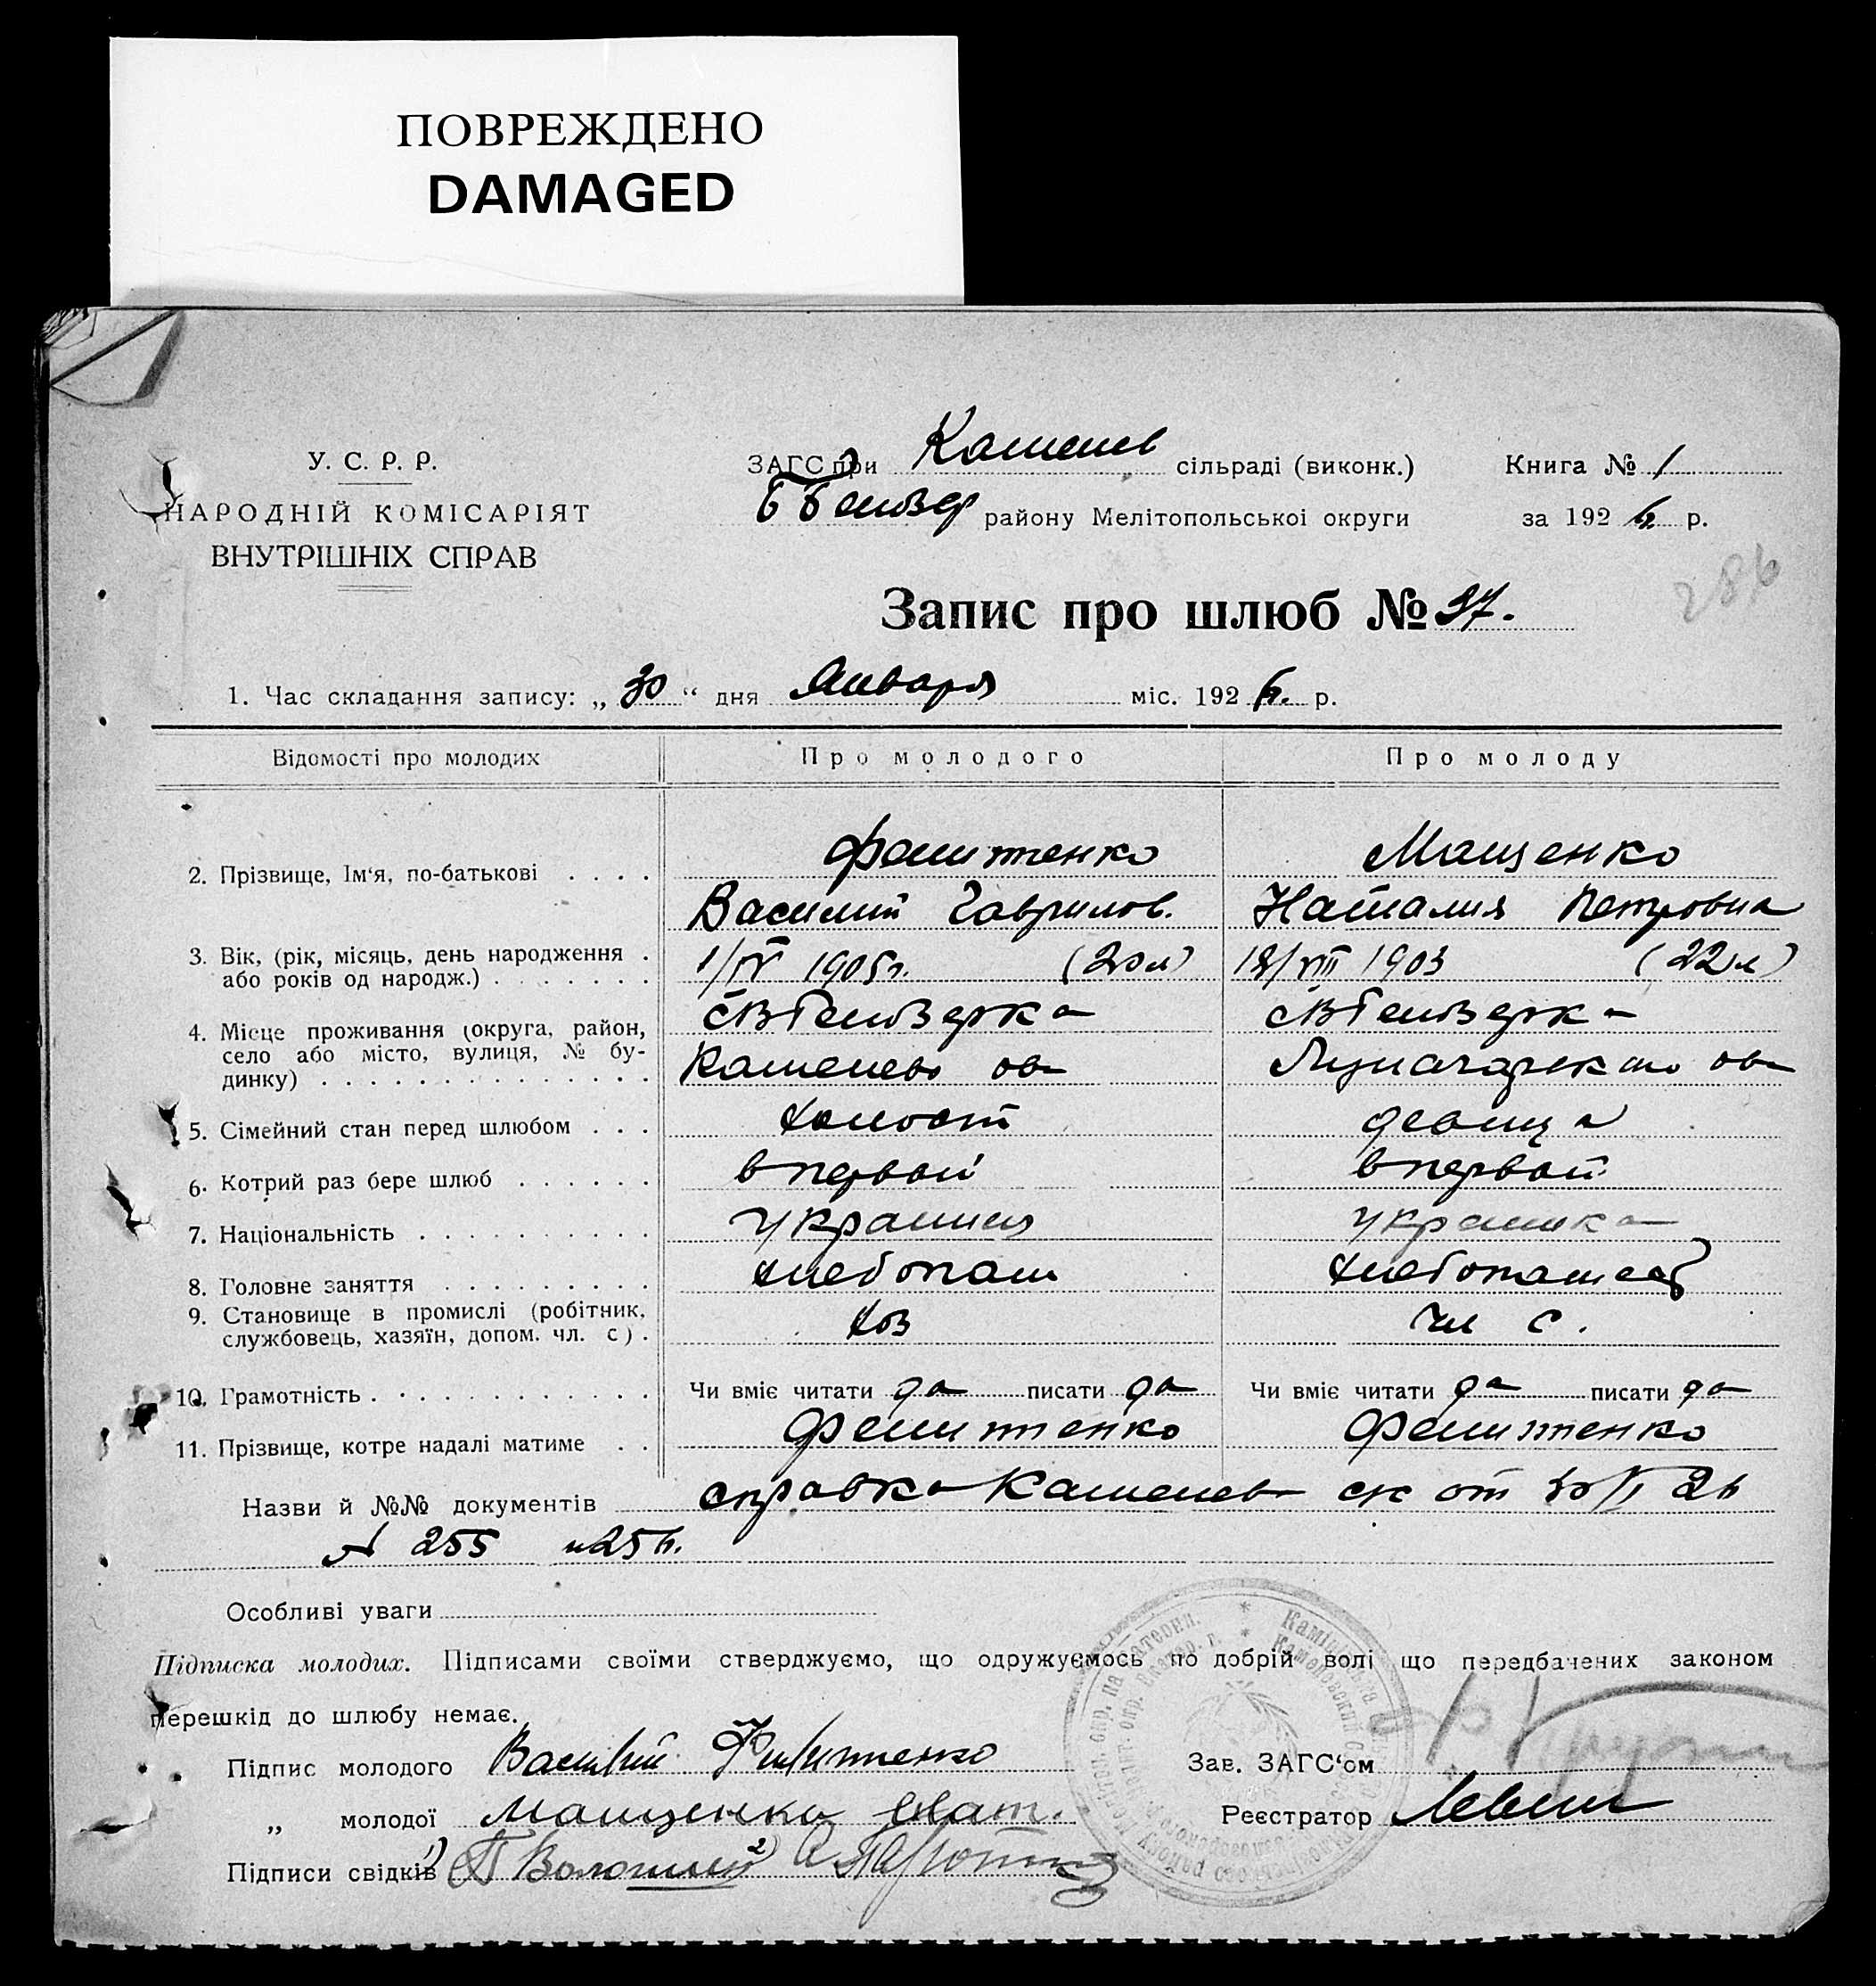 ПОВРЕЖДЕНО
DAMAGED
У. С. Р. Р.
НАРОДНІЙ КОМІСАРІЯТ
ВНУТРІШНІХ СПРАВ
ЗАГС при Каменев сільраді (виконк.) Книга № 1
району Мелітопольської округи за 1926 р.
286
Запис про шлюб № 37.
1. Час складання запису: „30“ дня Января міс. 1926. р.
Відомості про молодих Про молодого Про молоду
2. Прізвище, Ім'я, по-батькові . . . . Филипенко Мащенко
Василий Гаврилов. Наталия Петровна
3. Вік, (рік, місяць, день народження . або років од народж.) . . . . . . . 1/IV 1905г. (20 л) 18/VIII 1903 (22 л)
4. Місце проживання (округа, район, село або місто, вулиця, № будинку) . . . . . . . . . . . . . .
Каменев ов Луначарск ов
5. Сімейний стан перед шлюбом . . . холост девица
6. Котрий раз бере шлюб . . . . . . впервой впервой
7. Національність . . . . . . . . . . украинец украинка
8. Головне заняття . . . . . . . . . хлебопаш хлебопашеств
9. Становище в промислі (робітник, службовець, хазяїн, допом. чл. с) . хоз чл с.
10. Грамотність . . . . . . . . . . . . Чи вміє читати да писати да Чи вміє читати да писати да
11. Прізвище, котре надалі матиме . . Филипенко Филипенко
Назви й №№ документів справка Каменев ск от 30/I 26
№ 255 и 256.
Особливі уваги
Підписка молодих. Підписами своїми стверджуємо, що одружуємось по добрій волі що передбачених законом
перешкід до шлюбу немає.
Підпис молодого Василий Филипенко Зав. ЗАГС'ом
„ молодої Мащенко Нат. Реєстратор Левин
Підписи свідків 1) 2)